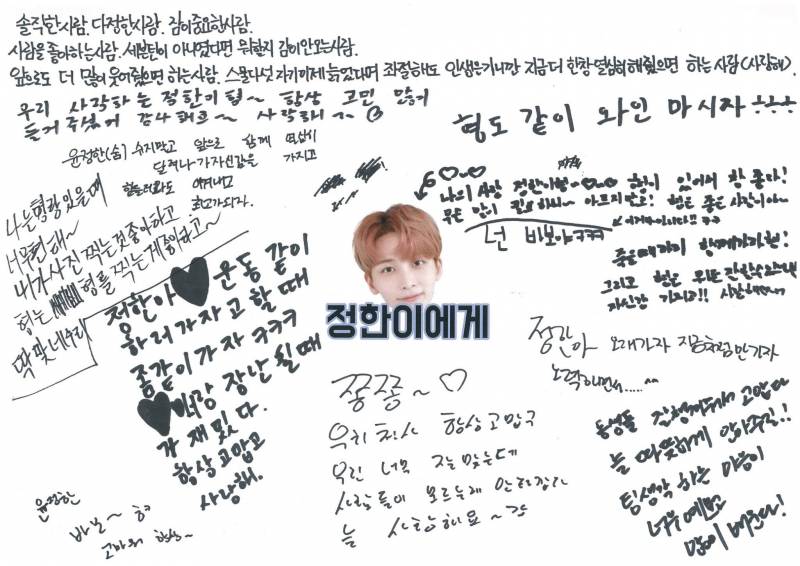 솔직한사람. 다정한사람. 짐이중요한사람.
사람을 좋아하는사람. 세븐틴이 아니였다면 뭐할지 감이안오는사람.
앞으로도 더 많이 웃어줬으면 하는사람. 스물다섯 자기이제 늙었다며 좌절해도 인생은기니깐 지금더 한창 열심히해줬으면 하는 사람 (사랑해).
우리 사랑하는 정한이형~ 항상 고민
들어주셔서 감사해요~ 사랑해~
형도 같이 와인 마시자
윤정한(승) 쉬지말고 앞으로 함께 열심히
달려나가자 자신감을 가지고
힘들더라도 이겨내고
최고가되자.
나는 형랑 있을때
너무편해~
내가 사진 찍는것좋아하고
형는 형를 찍는게 좋아하고~
딱 맞네 우리
나의 사랑 정한이형~ 형이 있어서 참 좋다!
넌 바보야ㅋㅋㅋ
죽을때까지 함께가자형!
그리고 형은 뭐든 잘할수있으니깐
자신감 가지고!!
정한아 ♥ 운동 같이
하러가자고 할때
좀같이가자 ㅋㅋㅋ
♥ 너랑 장난 칠때
가 재밌다.
항상고맙고
사랑해.
정한이에게
정한아 오래가자 지금처럼만가자
노력하면서.....^^
쭁쭁~ ♡
우리 천사 항상 고맙구
우린 너무 잘 맞는데
사람들이 모르는게 안타깝다
늘 사랑해요~
동생들 고맙다
늘 따뜻하게 안아주길!!
팀생각하는 마음이
너무예쁘고
많이 배운다!
윤정한
바보~ ㅎ
고마워 항상~